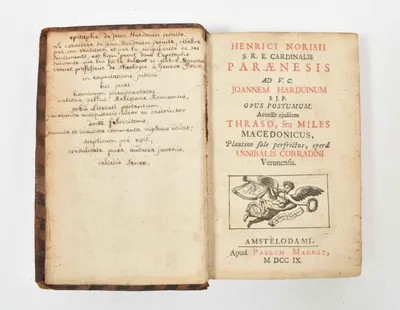 epitaphe de Jean Hardouin jesuite.
Le caractere de jean Hardouin, jesuite, célèbre
par son érudition et par la singularité de ses
sentiments, est bien peint dans l'epitaphe
suivante que lui fit
professeur de théologie à Geneve
in expectatione judicii
hic jacet
hominum
natione gallus, Religione Romanus,
orbis Litterati portentum,
venerandae antiquitatis cultor et destructor
docte febricitans,
somnia et inaudita commenta vigilans edidit,
scepticum pie egit,
credulitate puer, audacia juvenis,
deliriis senex.
HENRICI NORISII
S. R. E. CARDINALIS
PARÆNESIS
AD V. C.
JOANNEM HARDUINUM
S. J. P.
OPUS POSTUMUM.
Accessit ejusdem
THRASO, seu MILES
MACEDONICUS,
Plautino sale perfrictus, operâ
ANNIBALIS CORRADINI
Veronensis.
AMSTELODAMI.
Apud PAULUM MARRET,
M DCC IX.